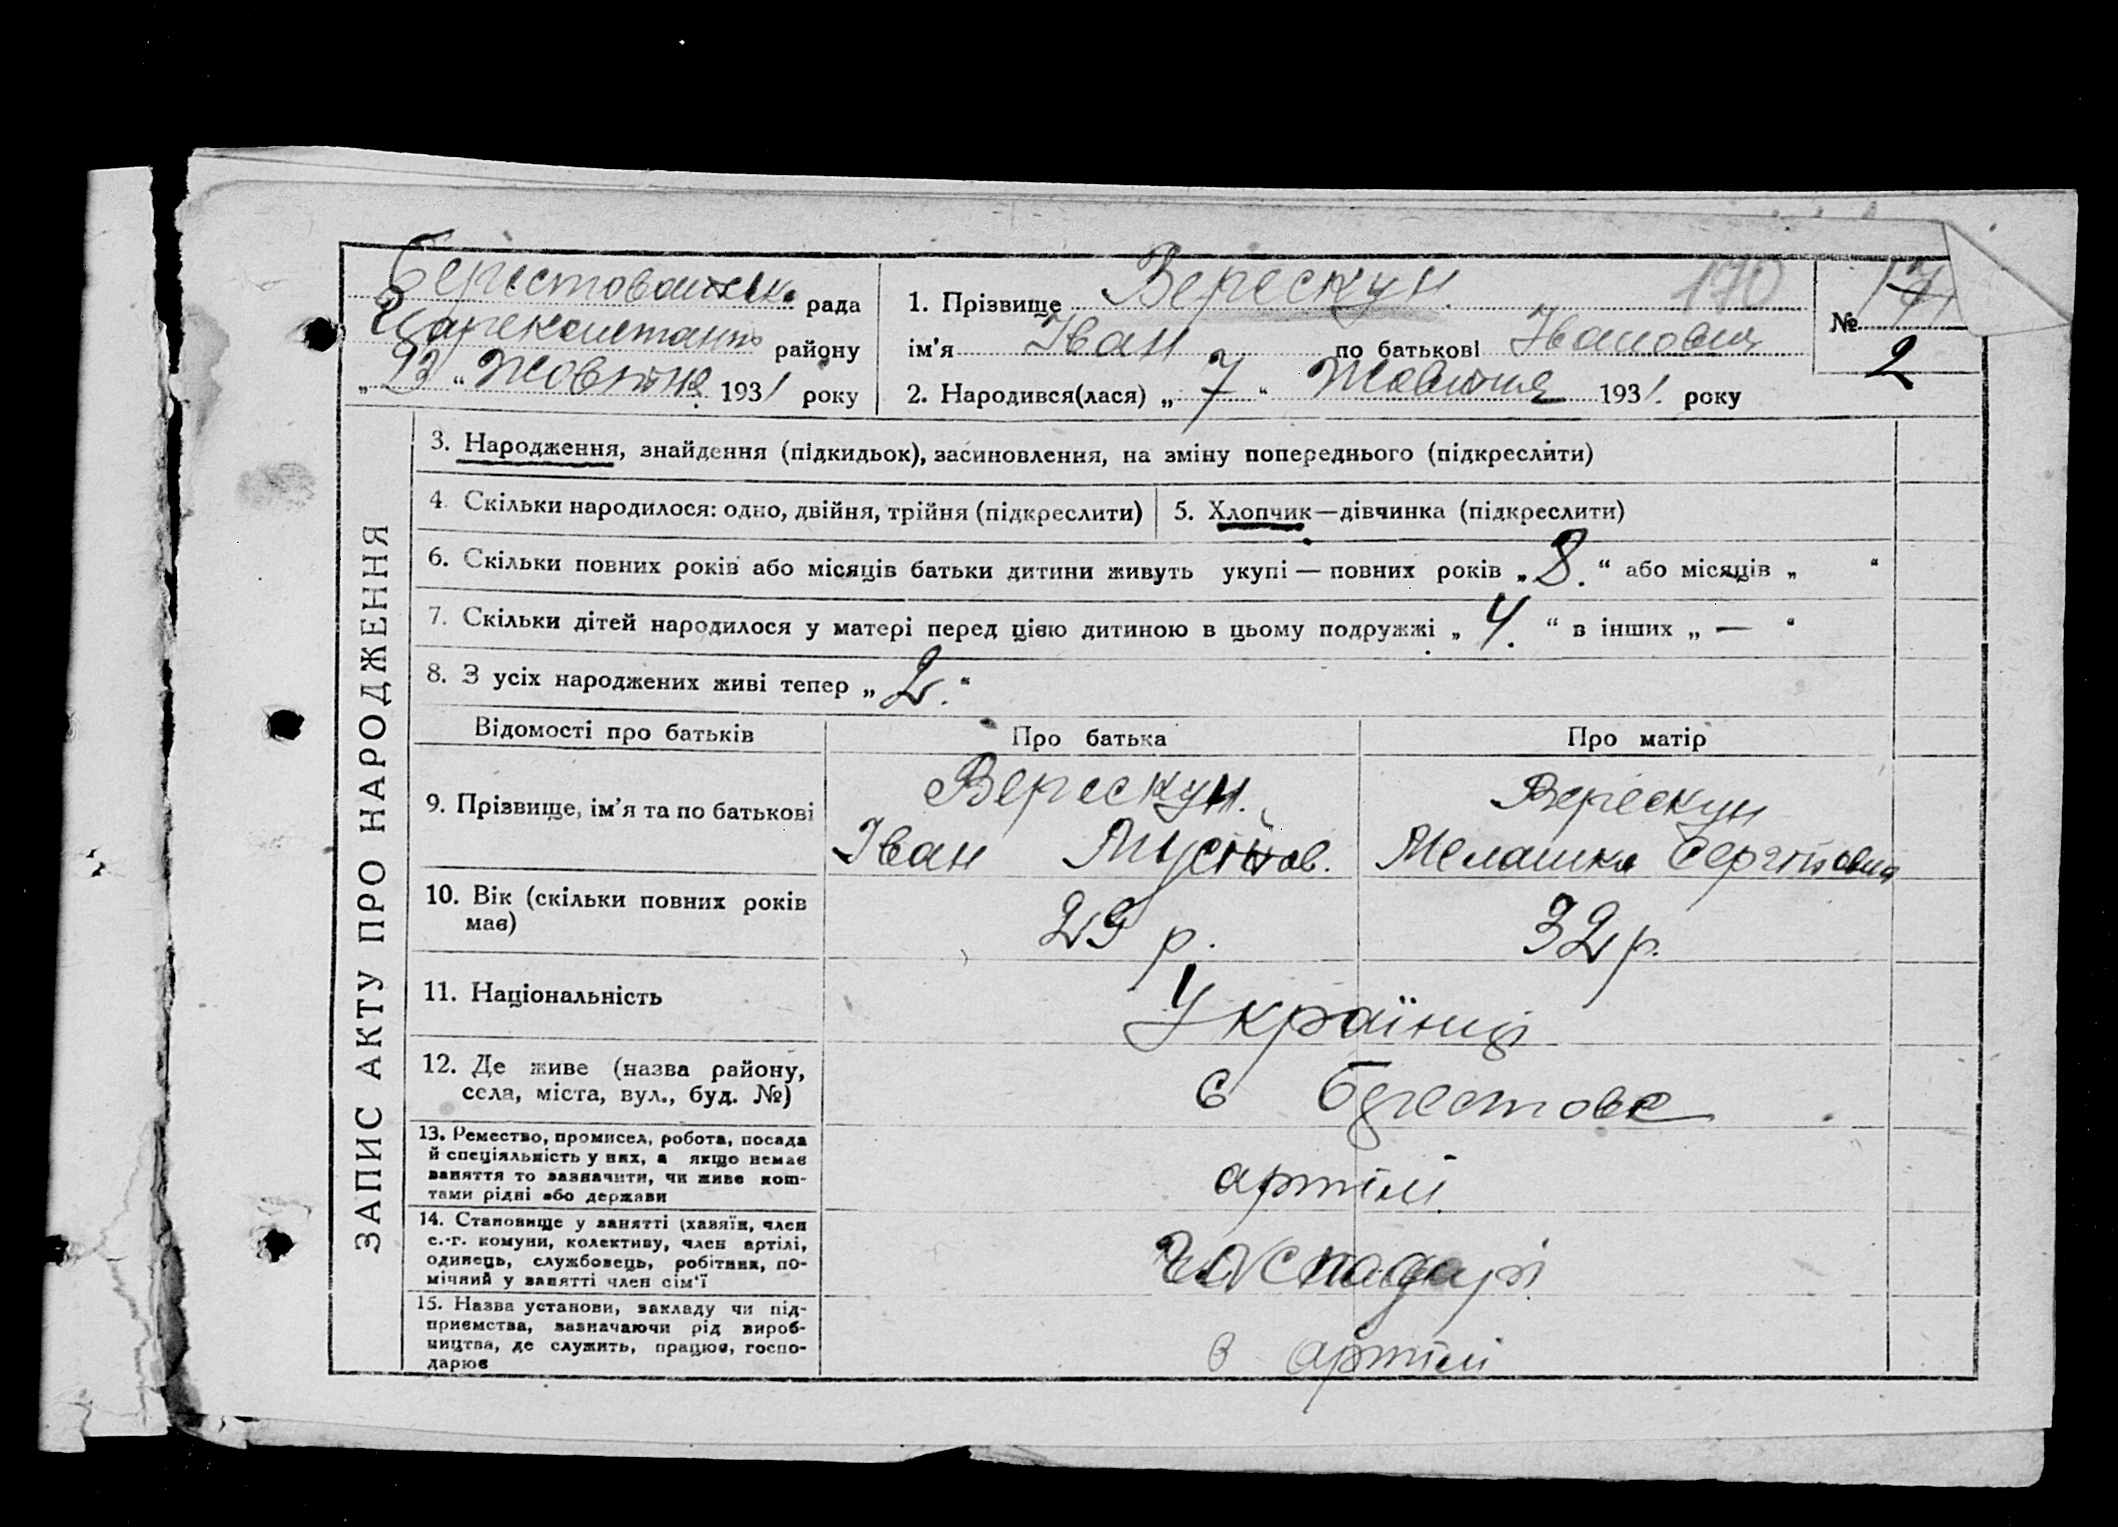 Берестовеньк. рада
району
„23“ Жовтня 1931 року
1. Прізвище Верескун 170
ім'я Іван по батькові Іванович
2. Народився(лася) „7“ Жовтня 1931. року
№ 171
2
ЗАПИС АКТУ ПРО НАРОДЖЕННЯ
3. Народження, знайдення (підкидьок), засиновлення, на зміну попереднього (підкреслити)
4. Скільки народилося: одно, двійня, трійня (підкреслити)
5. Хлопчик—дівчинка (підкреслити)
6. Скільки повних років або місяців батьки дитини живуть укупі — повних років „8.“ або місяців „ “
7. Скільки дітей народилося у матері перед цією дитиною в цьому подружжі „4.“ в інших „—“
8. З усіх народжених живі тепер „2.“
Відомості про батьків
Про батька
Про матір
9. Прізвище, ім'я та по батькові
Верескун.
Іван
Верескун
Мелашка Сергіївна
10. Вік (скільки повних років
має)
29 р.
32 р.
11. Національність
Українці
12. Де живе (назва району,
села, міста, вул., буд. №)
с Берестове
13. Ремество, промисел, робота, посада
й спеціяльність у них, а якщо немає
заняття то зазначити, чи живе кош-
тами рідні або держави
артілі
14. Становище у занятті (хазяїн, член
с.-г. комуни, колективу, член артілі,
одинець, службовець, робітник, по-
мічний у занятті член сім'ї
господарі
15. Назва установи, закладу чи під-
приємства, зазначаючи рід вироб-
ництва, де служить, працює, госпо-
дарює
в артілі